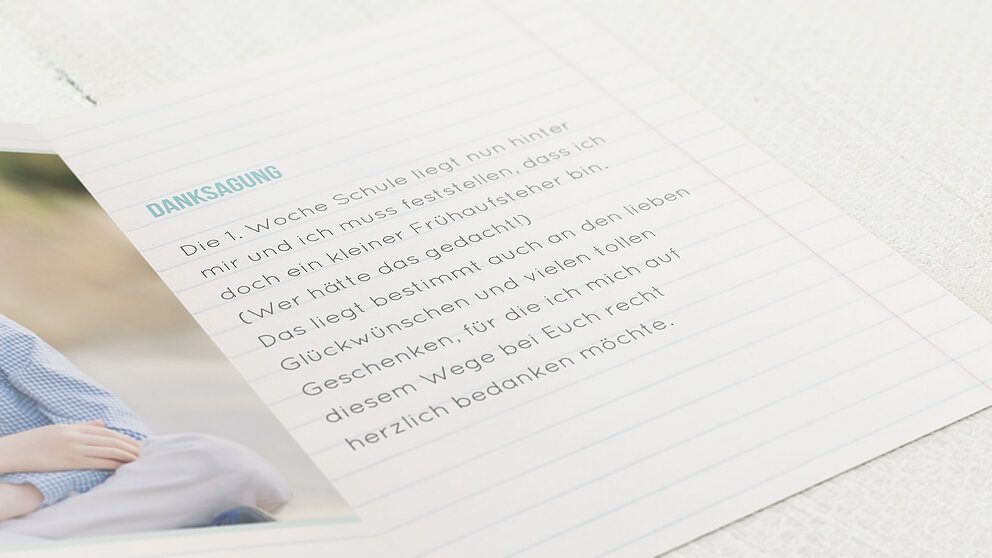 DANKSAGUNG
Die 1. Woche Schule liegt nun hinter
mir und ich muss feststellen, dass ich
doch ein kleiner Frühaufsteher bin.
(Wer hätte das gedacht!)
Das liegt bestimmt auch an den lieben
Glückwünschen und vielen tollen
Geschenken, für die ich mich auf
diesem Wege bei Euch recht
herzlich bedanken möchte.